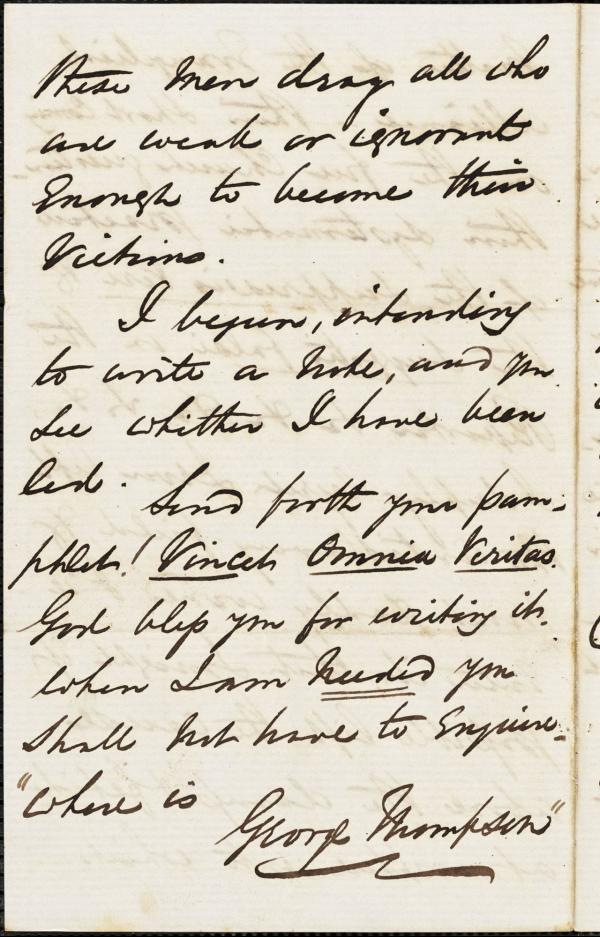 these men drag all who
are weak or ignorant
Enough to become their
Victims.
I begun, intending
to write a note, and you
see whither I have been
led.
Send forth your pam-
phlet! Vincet Omnia Veritas.
God bless you for writing it.
When I am needed you
shall not have to Enquire-
"where is
George Thompson"